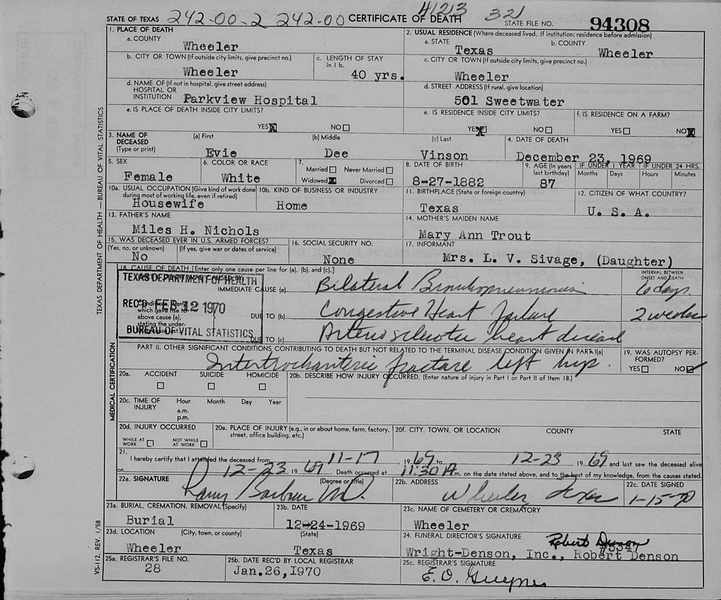 STATE OF TEXAS 242-00-2 242-00 CERTIFICATE OF DEATH 41213 321 STATE FILE NO. 94308
1. PLACE OF DEATH
a. COUNTY
Wheeler
2. USUAL RESIDENCE (Where deceased lived. If institution: residence before admission)
a. STATE Texas b. COUNTY Wheeler
b. CITY OR TOWN (If outside city limits, give precinct no.)
Wheeler
c. LENGTH OF STAY in 1 b.
40 yrs.
c. CITY OR TOWN (If outside city limits, give precinct no.)
Wheeler
d. NAME OF (If not in hospital, give street address)
HOSPITAL OR
INSTITUTION Parkview Hospital
d. STREET ADDRESS (If rural, give location)
501 Sweetwater
e. IS PLACE OF DEATH INSIDE CITY LIMITS?
YES X NO
e. IS RESIDENCE INSIDE CITY LIMITS?
YES X NO
f. IS RESIDENCE ON A FARM?
YES NO X
3. NAME OF DECEASED (Type or print)
(a) First Evie
(b) Middle Dee
(c) Last Vinson
4. DATE OF DEATH
December 23, 1969
5. SEX
Female
6. COLOR OR RACE
White
7. Married Never Married
Widowed X Divorced
8. DATE OF BIRTH
8-27-1882
9. AGE (In years last birthday)
87
IF UNDER 1 YEAR
Months Days
IF UNDER 24 HRS.
Hours Minutes
10a. USUAL OCCUPATION (Give kind of work done during most of working life, even if retired)
Housewife
10b. KIND OF BUSINESS OR INDUSTRY
Home
11. BIRTHPLACE (State or foreign country)
Texas
12. CITIZEN OF WHAT COUNTRY?
U. S. A.
13. FATHER'S NAME
Miles H. Nichols
14. MOTHER'S MAIDEN NAME
Mary Ann Trout
15. WAS DECEASED EVER IN U.S. ARMED FORCES?
(Yes, no, or unknown) (If yes, give war or dates of service)
No
16. SOCIAL SECURITY NO.
None
17. INFORMANT
Mrs. L. V. Sivage, (Daughter)
18. CAUSE OF DEATH [Enter only one cause per line for (a), (b), and (c).]
TEXAS DEPARTMENT OF HEALTH
REC'D FEB 12 1970
BUREAU OF VITAL STATISTICS
INTERVAL BETWEEN ONSET AND DEATH
IMMEDIATE CAUSE (a) Bilateral Bronchopneumonia 6 days
DUE TO (b) Congestive Heart Failure 2 weeks
DUE TO (c) Arteriosclerotic heart disease
PART II. OTHER SIGNIFICANT CONDITIONS CONTRIBUTING TO DEATH BUT NOT RELATED TO THE TERMINAL DISEASE CONDITION GIVEN IN PART I(a)
Intertrochanteric fracture left hip
19. WAS AUTOPSY PERFORMED?
YES NO
20a. ACCIDENT SUICIDE HOMICIDE
20b. DESCRIBE HOW INJURY OCCURRED. (Enter nature of injury in Part I or Part II of Item 18.)
20c. TIME OF INJURY
Hour a.m. p.m.
Month Day Year
20d. INJURY OCCURRED
WHILE AT WORK NOT WHILE AT WORK
20e. PLACE OF INJURY (e.g., in or about home, farm, factory, street, office building, etc.)
20f. CITY, TOWN, OR LOCATION COUNTY STATE
21. I hereby certify that I attended the deceased from 11-17 1969 to 12-23 1969 and last saw the deceased alive
on 12-23 1969 Death occurred at 11:30 A m. on the date stated above, and to the best of my knowledge, from the causes stated.
22a. SIGNATURE (Degree or title)
22b. ADDRESS
Wheeler Texas
22c. DATE SIGNED
1-15-70
23a. BURIAL, CREMATION, REMOVAL (Specify)
Burial
23b. DATE
12-24-1969
23c. NAME OF CEMETERY OR CREMATORY
Wheeler
23d. LOCATION (City, town, or county) (State)
Wheeler Texas
24. FUNERAL DIRECTOR'S SIGNATURE
Robert Denson
#5347
Wright-Denson, Inc., Robert Denson
25a. REGISTRAR'S FILE NO.
28
25b. DATE REC'D BY LOCAL REGISTRAR
Jan. 26, 1970
25c. REGISTRAR'S SIGNATURE
TEXAS DEPARTMENT OF HEALTH—BUREAU OF VITAL STATISTICS
MEDICAL CERTIFICATION
VS-112, REV. 1/58